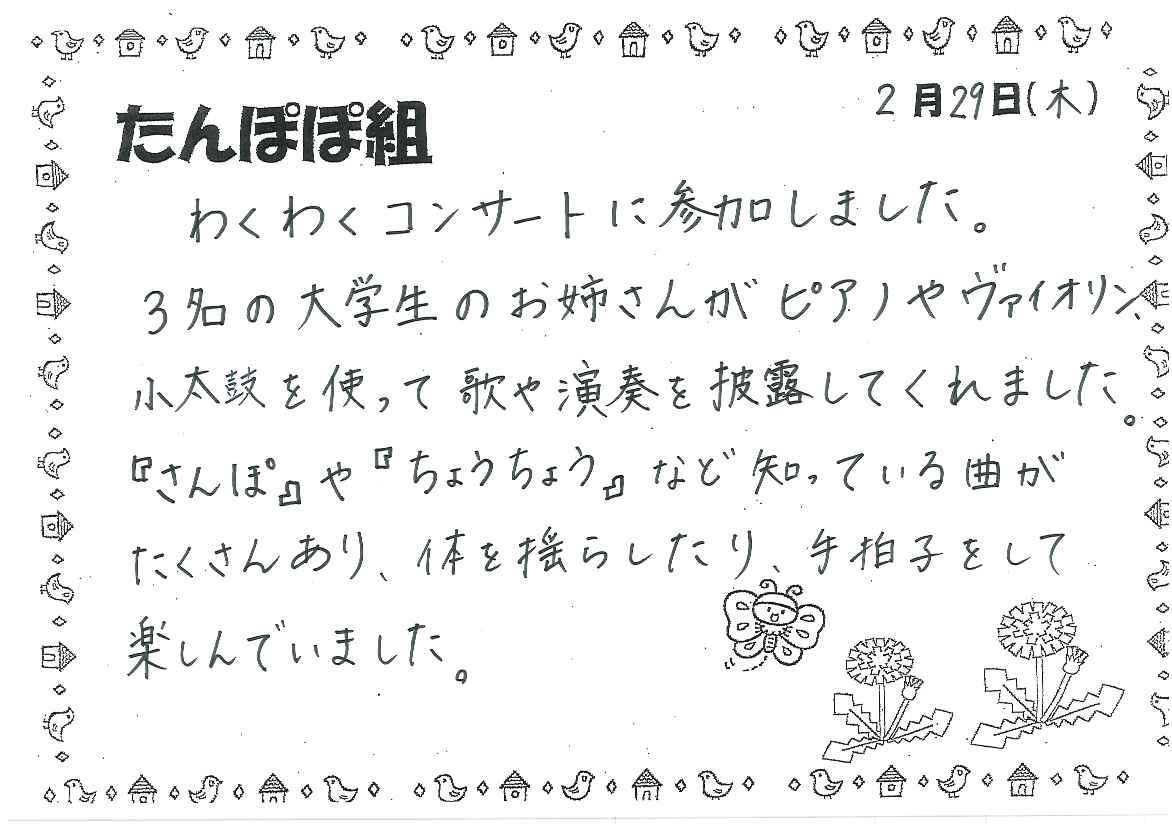 2月29日(木)
たんぽぽ組
わくわくコンサートに参加しました。
3名の大学生のお姉さんがピアノやヴァイオリン、
小太鼓を使って歌や演奏を披露してくれました。
『さんぽ』や『ちょうちょう』など知っている曲が
たくさんあり、体を揺らしたり、手拍子をして
楽しんでいました。